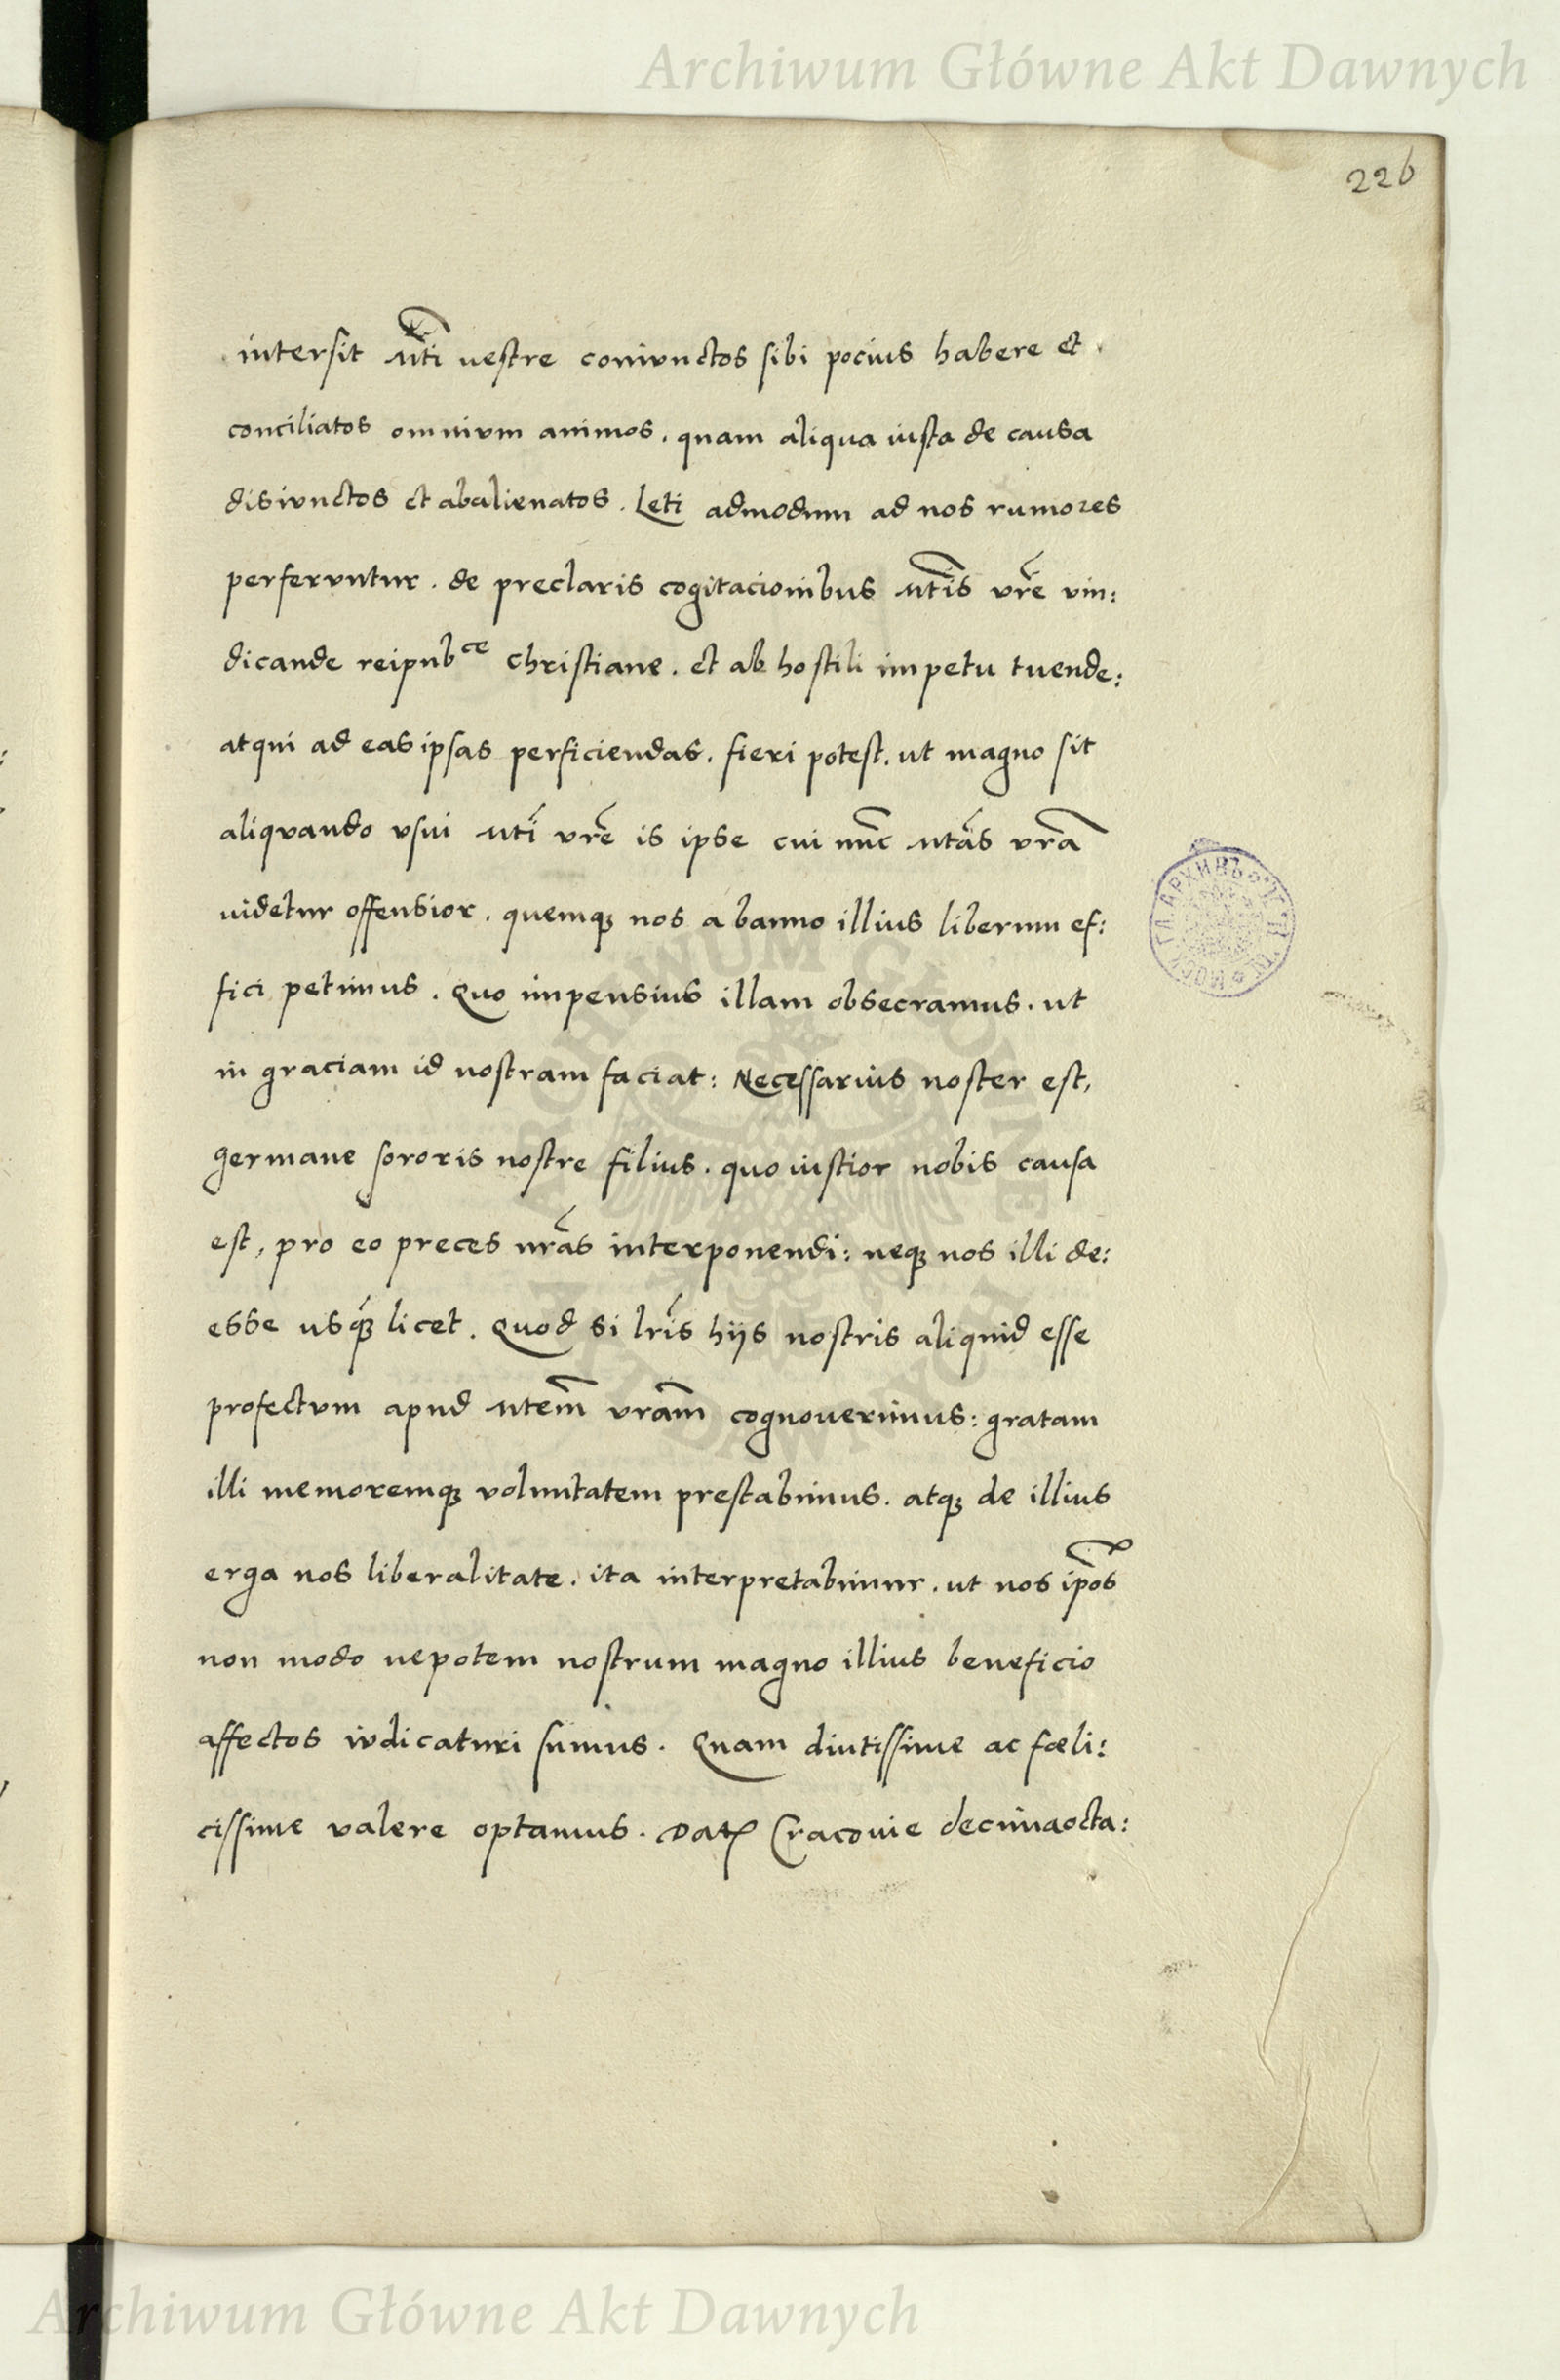 Archiwum Główne Akt Dawnych
226
intersit Mti vestre coniunctos sibi pocius habere et
conciliatos omnium animos. quam aliqua iusta de causa
disiunctos et abalienatos. Leti admodum ad nos rumores
perferuntur. de preclaris cogitacionibus Mtis vre vin:
dicande reipubce Christiane. et ab hostili impetu tuende:
atqui ad eas ipsas perficiendas. fieri potest. ut magno sit
aliquando usui Mti vre is ipse cui nunc Mtas vra
videtur offensior. quemq nos a banno illius liberum ef:
fici petimus. Quo impensius illam obsecramus. ut
in graciam id nostram faciat: Necessarius noster est,
germane sororis nostre filius. quo iustior nobis causa
est, pro eo preces nras interponendi: neq nos illi de:
esse usq licet. Quod si lris hijs nostris aliquid esse
profectum apud Mtem vram cognoverimus: gratam
illi memoremq voluntatem prestabimus. atq de illius
erga nos liberalitate. ita interpretabimur. ut nos ipos
non modo nepotem nostrum magno illius beneficio
affectos iudicaturi sumus. Quam diutissime ac fœli:
cissime valere optamus. Dat Cracovie decimaocta:
Archiwum Główne Akt Dawnych